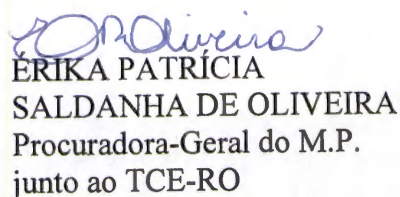 ÉRIKA PATRÍCIA
SALDANHA DE OLIVEIRA
Procuradora-Geral do M.P.
junto ao TCE-RO